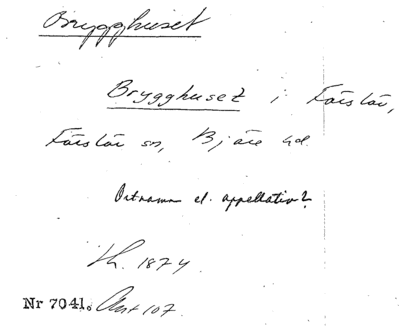 Brygghuset
Brygghuset i Färslöv,
Färslöv sn, Bjäre hd.
Ortnamn el. appellativ?
1874.
Nr 7041. 107